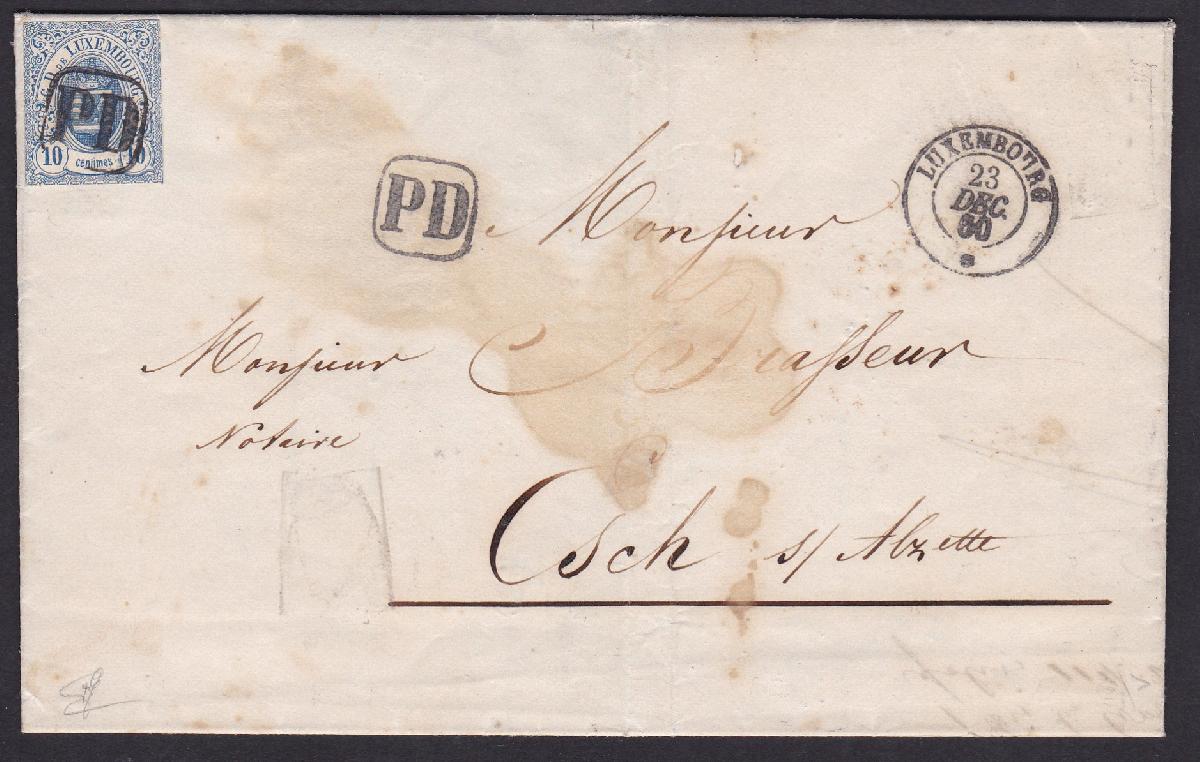 G. D. DE LUXEMBOURG
PD
10 centimes 10
PD
LUXEMBOURG
23
DEC.
60
Monsieur
Monsieur Brasseur
Notaire
Esch s/ Alzette